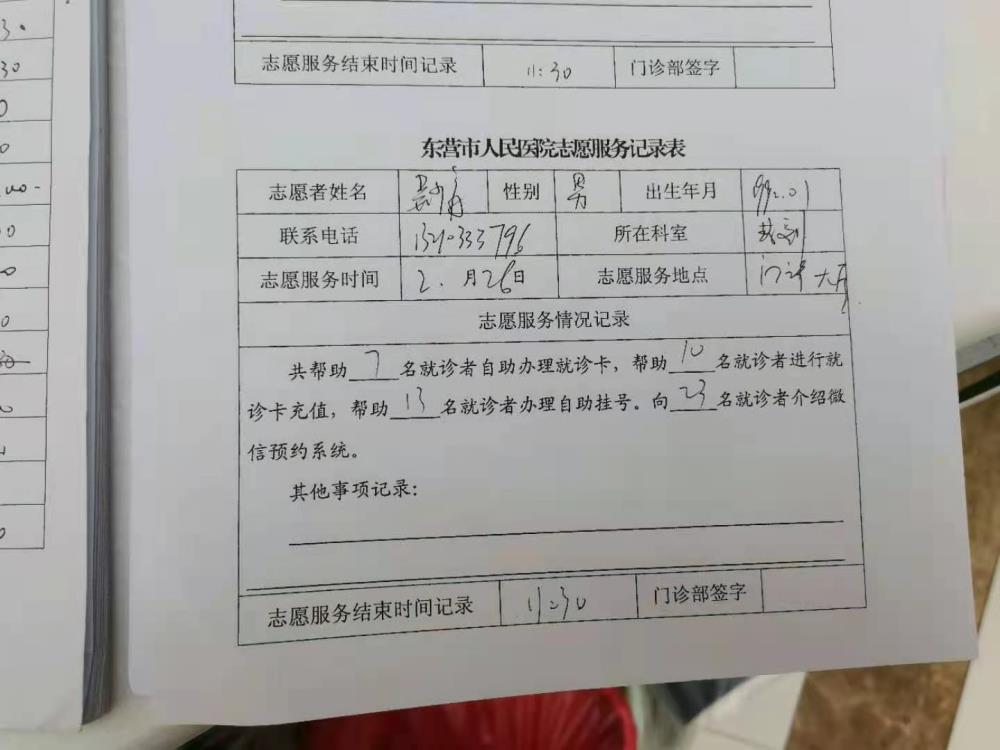 3.
30
0
0
00-
00
0
0
0
志愿服务结束时间记录 11:30 门诊部签字
东营市人民医院志愿服务记录表
志愿者姓名 性别 男 出生年月 92.01
联系电话 所在科室
志愿服务时间 2.月26日 志愿服务地点 门诊大厅
志愿服务情况记录
共帮助 7 名就诊者自助办理就诊卡，帮助 10 名就诊者进行就
诊卡充值，帮助 13 名就诊者办理自助挂号。向 23 名就诊者介绍微
信预约系统。
其他事项记录：
志愿服务结束时间记录 11:30 门诊部签字